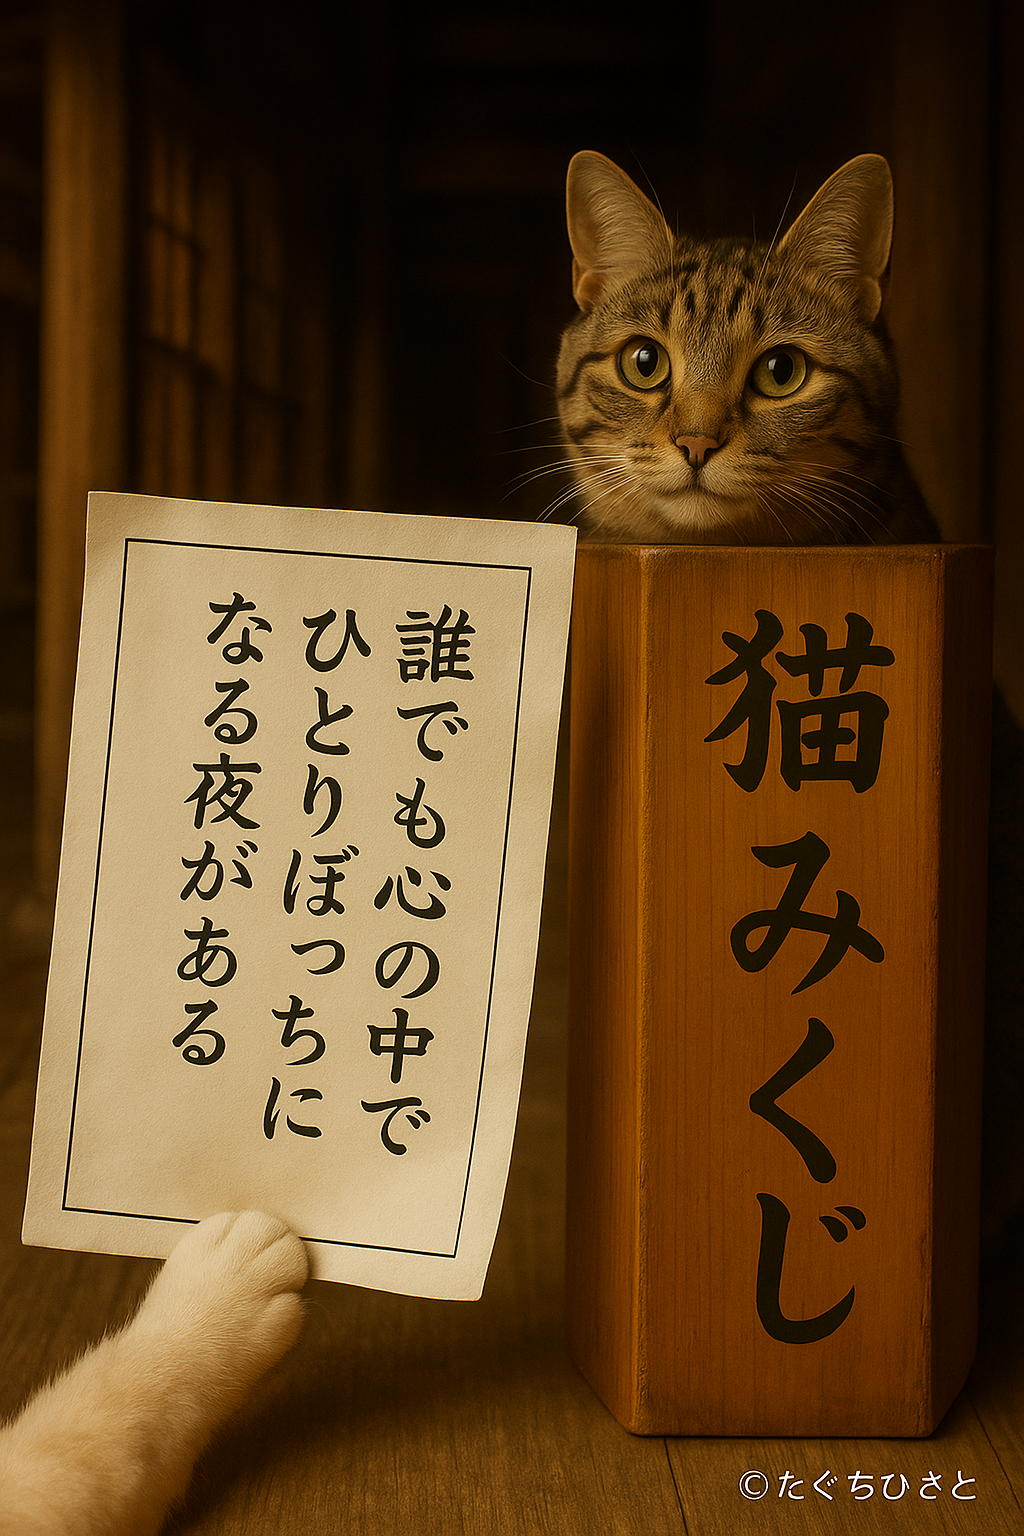 誰でも心の中で
ひとりぼっちに
なる夜がある
猫みくじ
©たぐちひさと